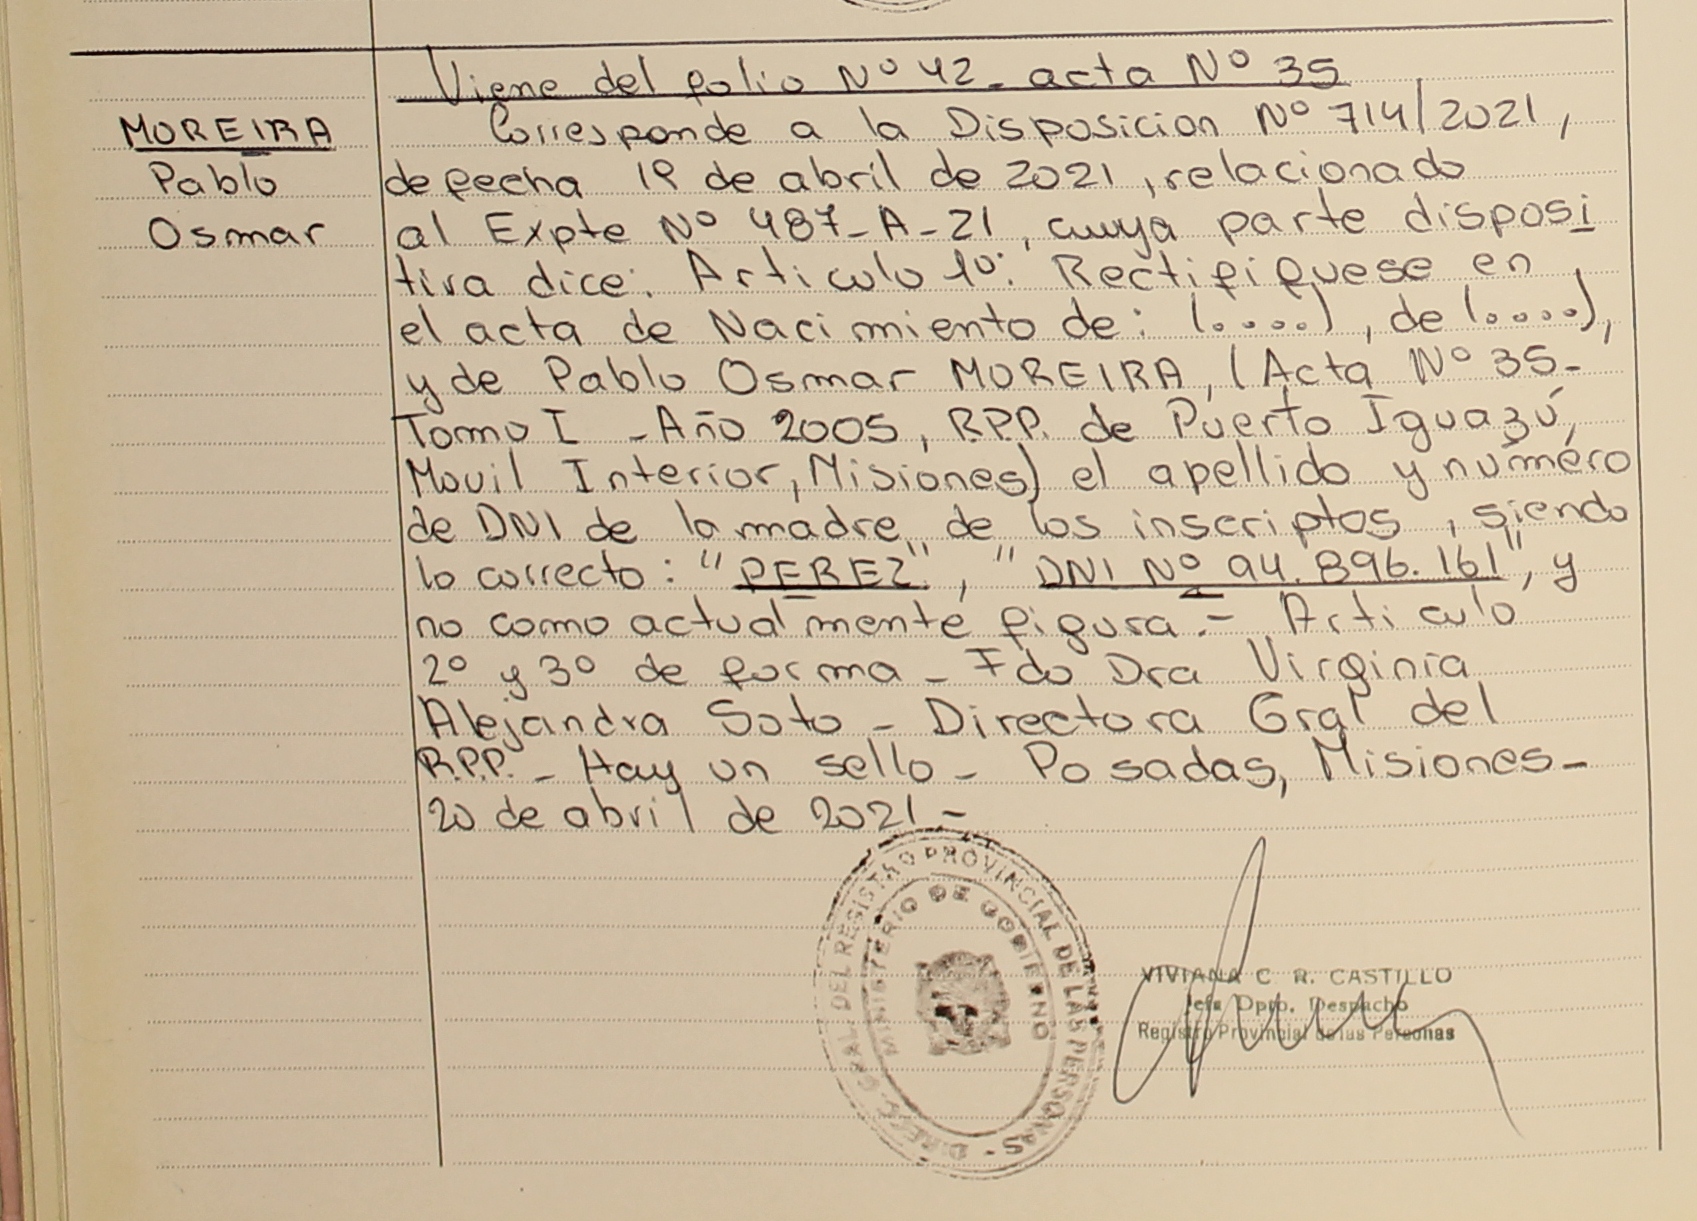 Viene del folio Nº 42_ acta Nº 35
MOREIRA
Pablo
Osmar
Corresponde a la Disposicion Nº 714/2021,
de fecha 19 de abril de 2021, relacionado
al Expte Nº 487_A_21, cuya parte disposi
tiva dice: Articulo 1º: Rectifiquese en
el acta de Nacimiento de: (....), de (....),
y de Pablo Osmar MOREIRA, (Acta Nº 35_
Tomo I _ Año 2005, R.P.P. de Puerto Iguazú,
Movil Interior, Misiones) el apellido y número
de DNI de la madre de los inscriptos, siendo
lo correcto: "PEREZ", "DNI Nº 94.896.161", y
no como actualmente figura.- Articulo
2º y 3º de forma _ Fdo Dra Virginia
Alejandra Soto _ Directora Gral del
R.P.P. _ Hay un sello _ Posadas, Misiones_
20 de abril de 2021_
DIREC. GRAL. DEL REGISTRO PROVINCIAL DE LAS PERSONAS -
MINISTERIO DE GOBIERNO
VIVIANA C. R. CASTILLO
Jefa Dpto. Despacho
Registro Provincial de las Personas